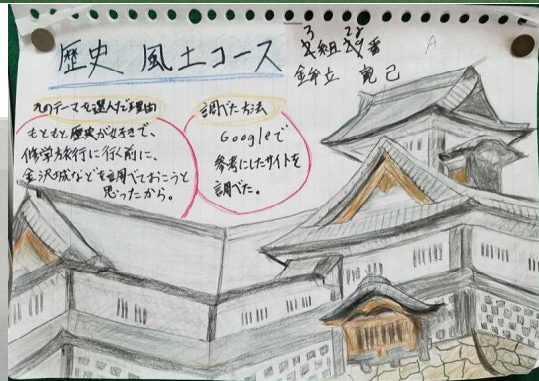 歴史 風土コース
3組28番
A
このテーマを選んだ理由
もともと歴史が好きで、
修学旅行に行く前に、
金沢城などを調べておこうと
思ったから。
調べた方法
Googleで
参考にしたサイトを
調べた。